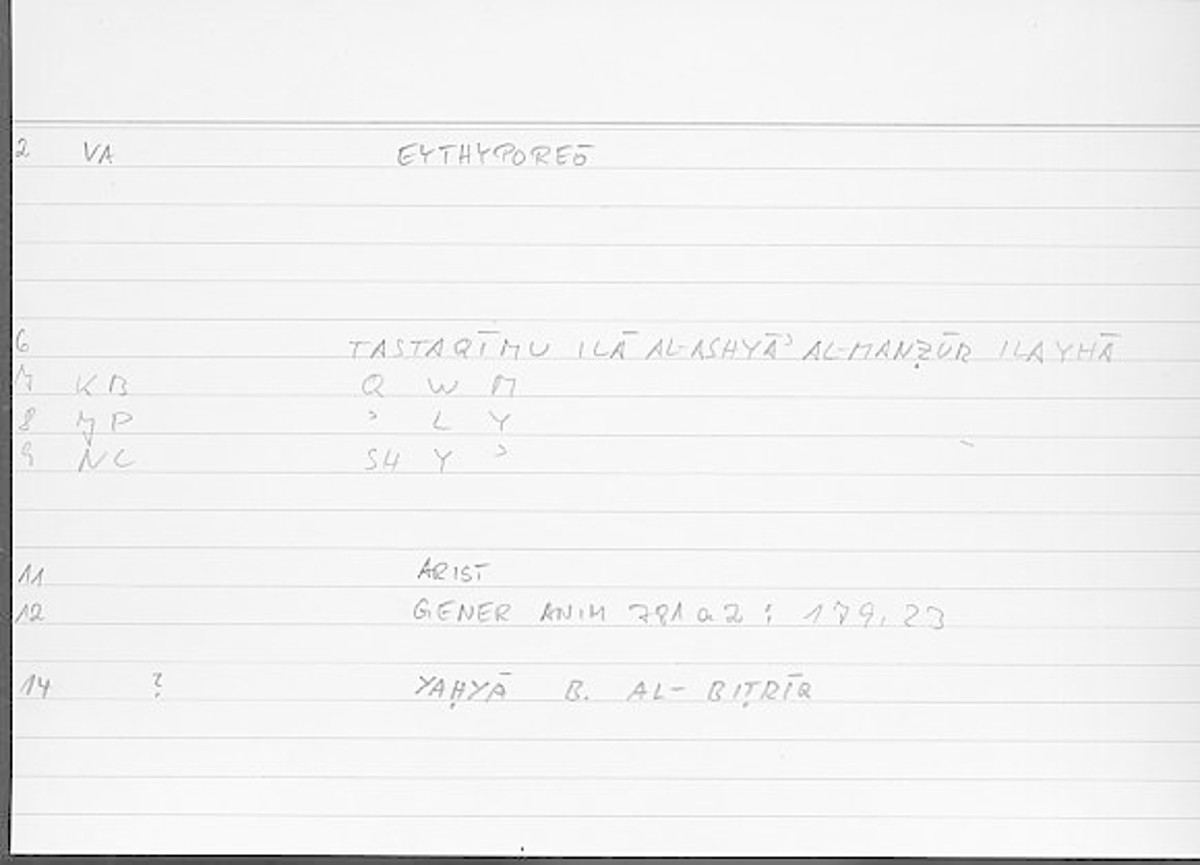 2 VA EYTHYPOREŌ
6 TASTAQĪMU ILĀ AL-ASHYĀʾ AL-MANẒŪR ILAYHĀ
7 KB Q W M
8 JP ʾ L Y
9 NC SH Y ʾ
11 ARIST
12 GENER ANIM 781 a 2 : 179,23
14 ? YAḤYĀ B. AL-BIṬRĪQ